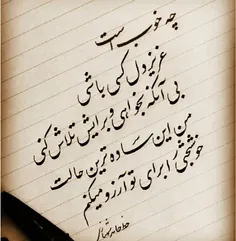 چه خوب است
عزیز دل کسی باشی
بی آنکه بخواهی و برایش تلاش کنی
من این ساده ترین حالت
خوشبختی را برای تو آرزو میکنم